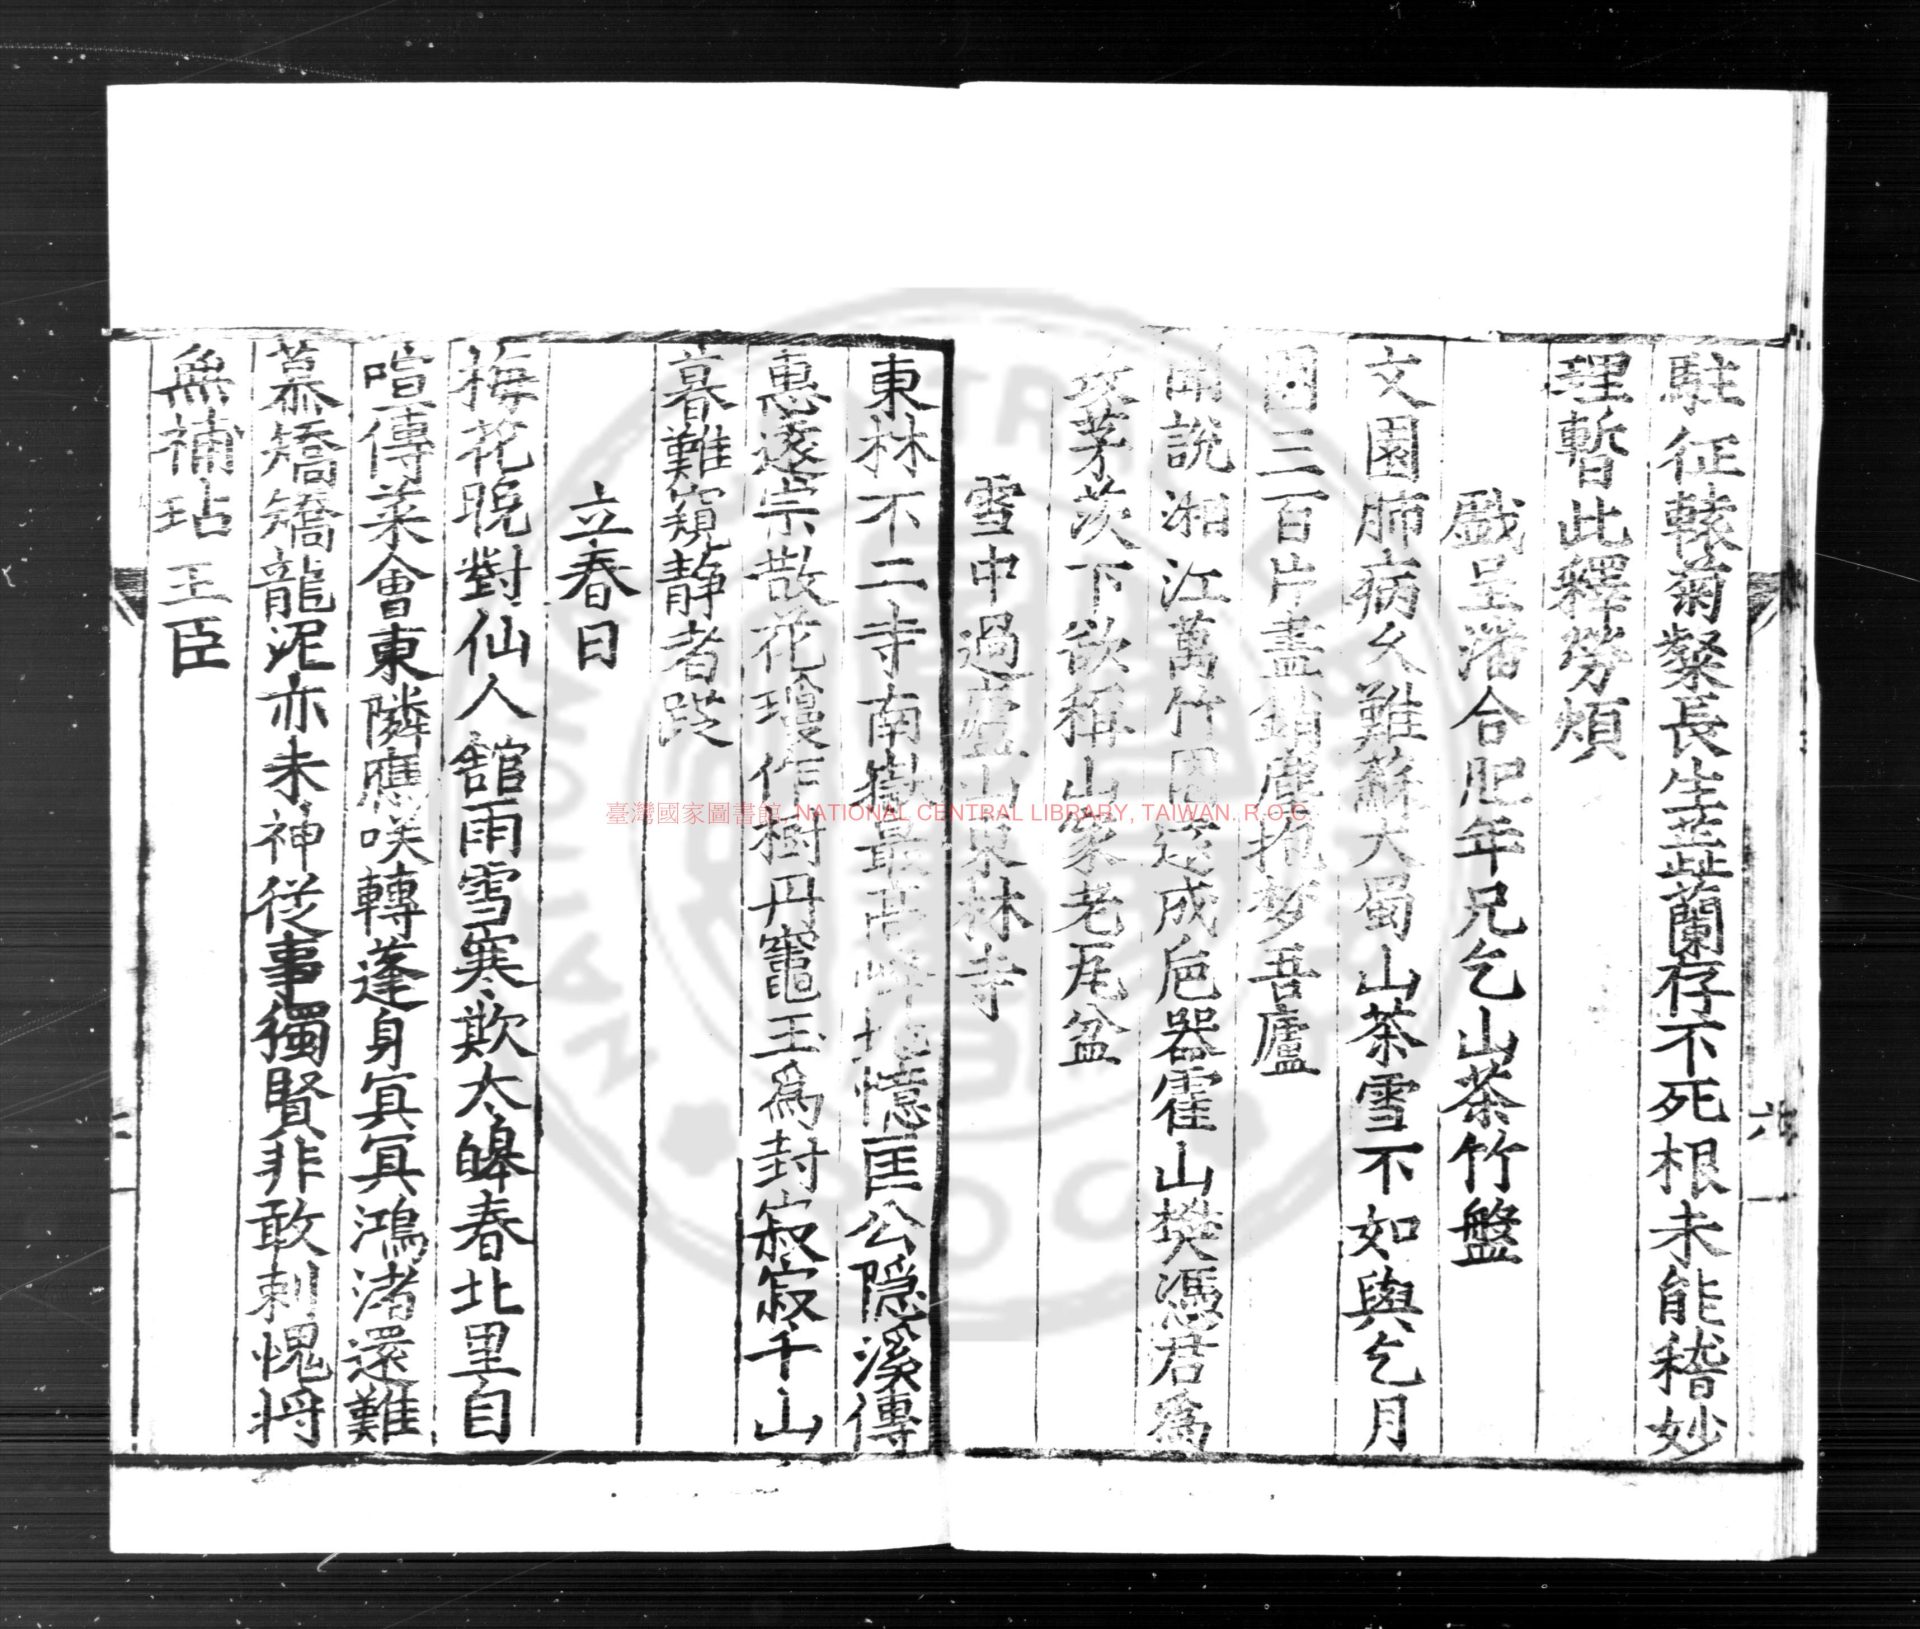 駐征轅菊粲長生蕋蘭存不死根未能稽妙
理暫此釋勞煩
戲呈潘合肥年兄乞山茶竹盤
文園肺病久難蘇大蜀山茶雪不如與乞月
團三百片盡銷塵抱夢吾廬
聞說湘江萬竹園迄成巵器霍山樊憑君爲
致茅茨下欲稱山家老瓦盆
雪中過廬山東林寺
東林不二寺南嶽最高峰地憶匡公隱溪傳
惠遠宗散花瓊作樹丹竈玉爲封寂寂千山
暮難窺静者蹤
立春日
梅花晚對仙人舘雨雪寒欺太皞春北里自
喧傳菜會東隣應咲轉蓬身冥冥鴻渚還難
慕矯矯龍泥亦未神從事獨賢非敢刺愧將
無補玷王臣
六
臺灣國家圖書館, NATIONAL CENTRAL LIBRARY, TAIWAN. R.O.C